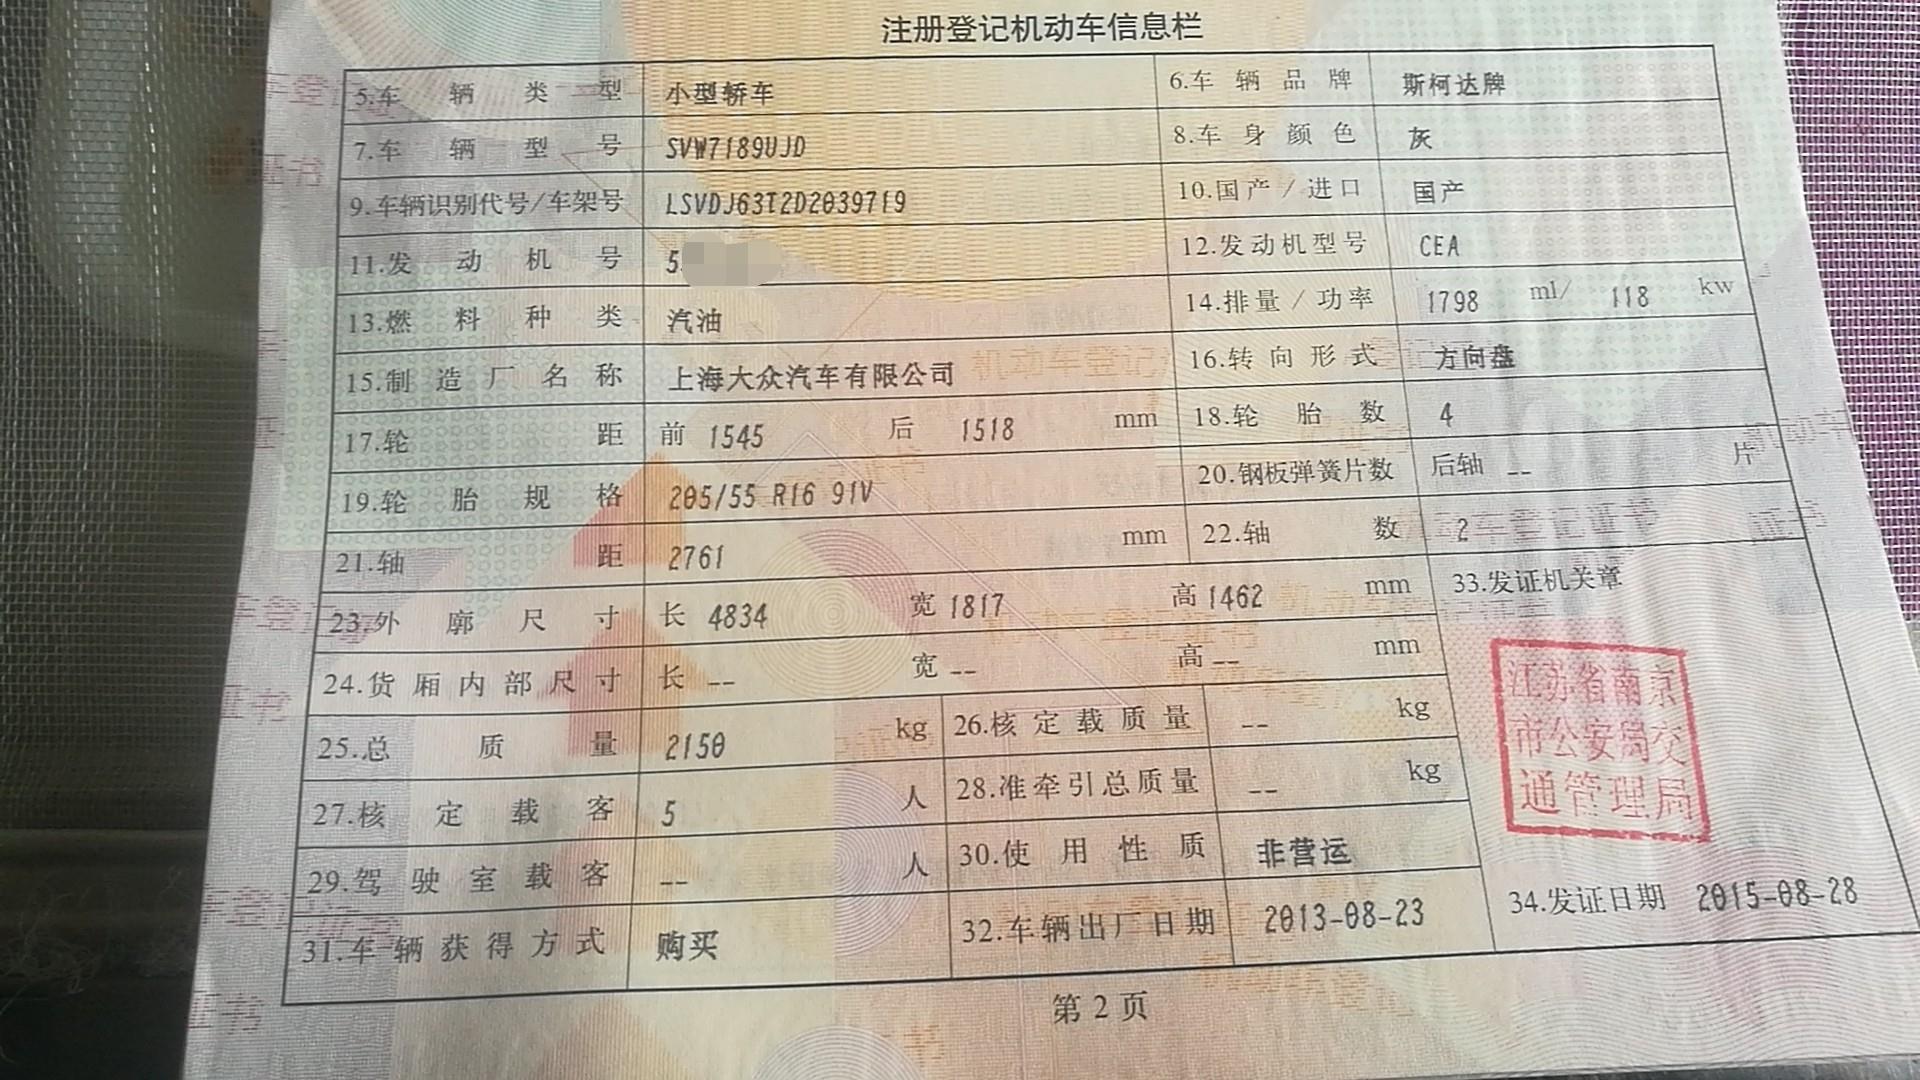 注册登记机动车信息栏
5.车辆类型 小型轿车 6.车辆品牌 斯柯达牌
7.车辆型号 SVW7189UJD 8.车身颜色 灰
9.车辆识别代号/车架号 LSVDJ63T2D2039719 10.国产/进口 国产
11.发动机号 5 12.发动机型号 CEA
13.燃料种类 汽油 14.排量/功率 1798 ml/ 118 kw
15.制造厂名称 上海大众汽车有限公司 16.转向形式 方向盘
17.轮距 前 1545 后 1518 mm 18.轮胎数 4
19.轮胎规格 205/55 R16 91V 20.钢板弹簧片数 后轴 -- 片
21.轴距 2761 mm 22.轴数 2
23.外廓尺寸 长 4834 宽 1817 高 1462 mm 33.发证机关章
24.货厢内部尺寸 长 -- 宽 -- 高 -- mm
江苏省南京
市公安局交
通管理局
25.总质量 2150 kg 26.核定载质量 -- kg
27.核定载客 5 人 28.准牵引总质量 -- kg
29.驾驶室载客 -- 人 30.使用性质 非营运
31.车辆获得方式 购买 32.车辆出厂日期 2013-08-23 34.发证日期 2015-08-28
第 2 页